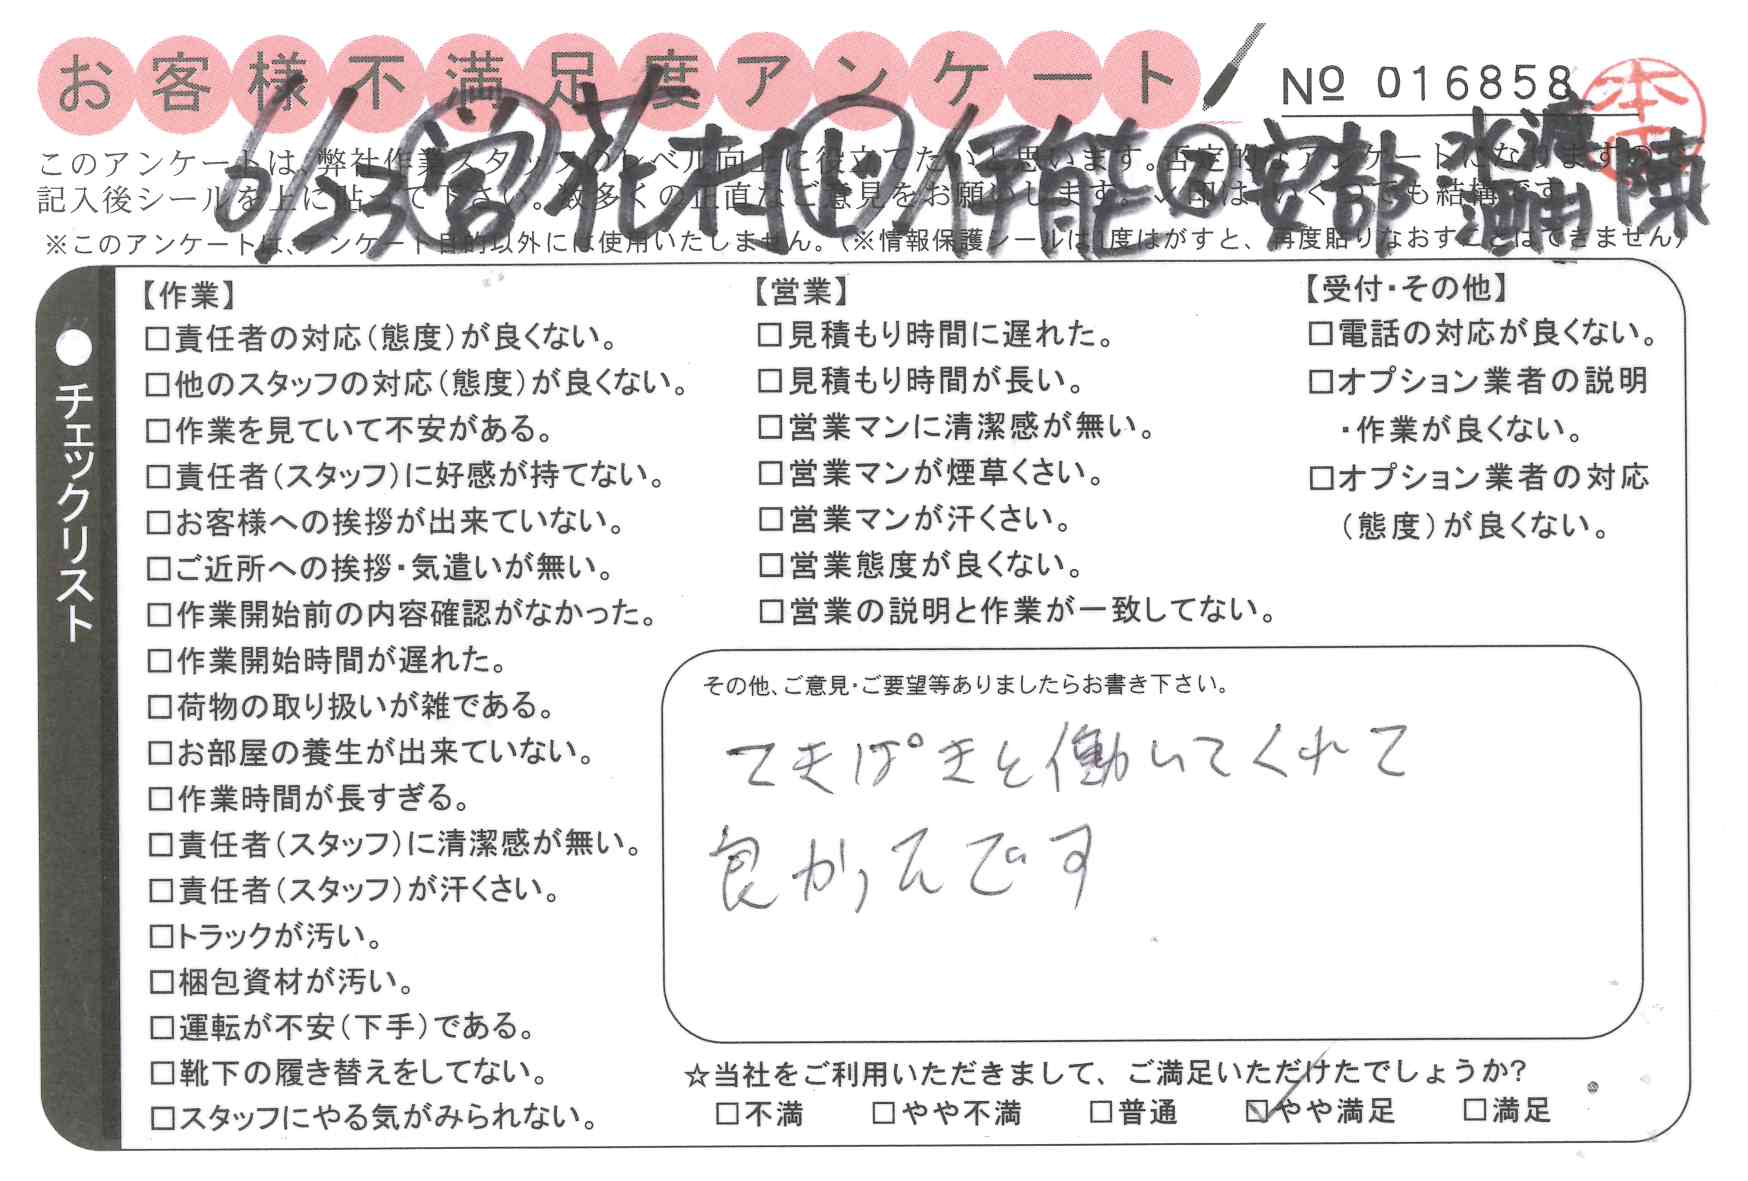 お客様不満足度アンケート
No 016858
このアンケートは、弊社作業スタッフのレベル向上に役立てたいと思います。否定的なアンケートになりますので
記入後シールを上に貼って下さい。数多くの正直なご意見をお願いします。✓印は、いくつでも結構です。
※このアンケートは、アンケート目的以外には使用いたしません。(※情報保護シールは1度はがすと、再度貼りなおすことはできません)
花村 伊能 安部 陳
●チェックリスト
【作業】
□責任者の対応(態度)が良くない。
□他のスタッフの対応(態度)が良くない。
□作業を見ていて不安がある。
□責任者(スタッフ)に好感が持てない。
□お客様への挨拶が出来ていない。
□ご近所への挨拶・気遣いが無い。
□作業開始前の内容確認がなかった。
□作業開始時間が遅れた。
□荷物の取り扱いが雑である。
□お部屋の養生が出来ていない。
□作業時間が長すぎる。
□責任者(スタッフ)に清潔感が無い。
□責任者(スタッフ)が汗くさい。
□トラックが汚い。
□梱包資材が汚い。
□運転が不安(下手)である。
□靴下の履き替えをしてない。
□スタッフにやる気がみられない。
【営業】
□見積もり時間に遅れた。
□見積もり時間が長い。
□営業マンに清潔感が無い。
□営業マンが煙草くさい。
□営業マンが汗くさい。
□営業態度が良くない。
□営業の説明と作業が一致してない。
【受付・その他】
□電話の対応が良くない。
□オプション業者の説明
・作業が良くない。
□オプション業者の対応
(態度)が良くない。
その他、ご意見・ご要望等ありましたらお書き下さい。
てきぱきと働いてくれて
良かったです
☆当社をご利用いただきまして、ご満足いただけたでしょうか?
□不満 □やや不満 □普通 ☑やや満足 □満足